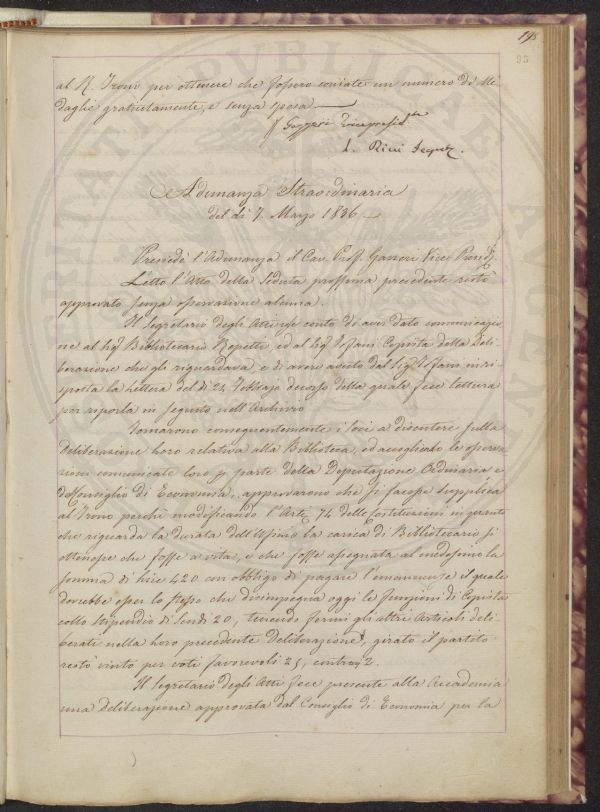 195
95
al R. Trono per ottenere che fossero coniate un numero di Me
daglie gratuitamente, e senza spesa —
Gazzeri Vicepresid.te
L. Ricci Segret.
Adunanza Straordinaria
del dì 7. Marzo 1836 —
Presiede l'Adunanza il Cav. Prof. Gazzeri Vice Presid.
Letto l'Atto della Seduta prossima precedente restò
approvato senza osservazione alcuna.
Il Segretario degli Atti rese conto di aver dato comunicazio
ne al Sig. Bibliotecario Repetti, ed al Sig. Copista della Deli
berazione che gli riguardava, e di avere avuto dal Sig. in ri-
sposta la Lettera del dì 24 Febbrajo decorso della quale fece lettura
per riporla in seguito nell'Archivio
Tornarono conseguentemente i Socj a discutere sulla
deliberazione loro relativa alla Biblioteca, ed accogliendo le osserva
zioni comunicate loro p parte della Deputazione Ordinaria e
del Consiglio di Economia, approvarono che si facesse supplica
al Trono perchè modificando l'Art. 74 delle Costituzioni in quanto
che riguarda la durata dell'Ufizio la carica di Bibliotecario si
ottenesse che fosse a vita, e che fosse assegnata al medesimo la
somma di lire 420 con obbligo di pagare l'amanuense il quale
dovrebbe esser lo stesso che disimpegna oggi le funzioni di Copista
collo stipendio di Scudi 20, tenendo fermi gli altri Articoli deli
berati nella loro precedente Deliberazione, girato il partito
restò vinto per voti favorevoli 25, contrarj 2.
Il Segretario degli Atti fece presente alla Accademia
una deliberazione approvata dal Consiglio di Economia per la